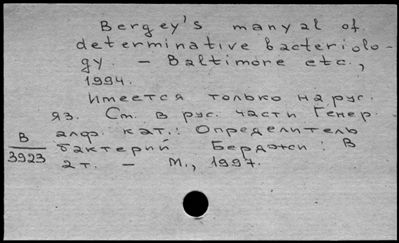 Bergey's manyal of
determinative bacteriolo-
gy. - Baltimore etc.,
1994.
Имеется только на рус.
яз. См. в рус. части Генер.
алф. кат.: Определитель
В
3923
бактерий Берджи: В
2 т. - М., 1997.